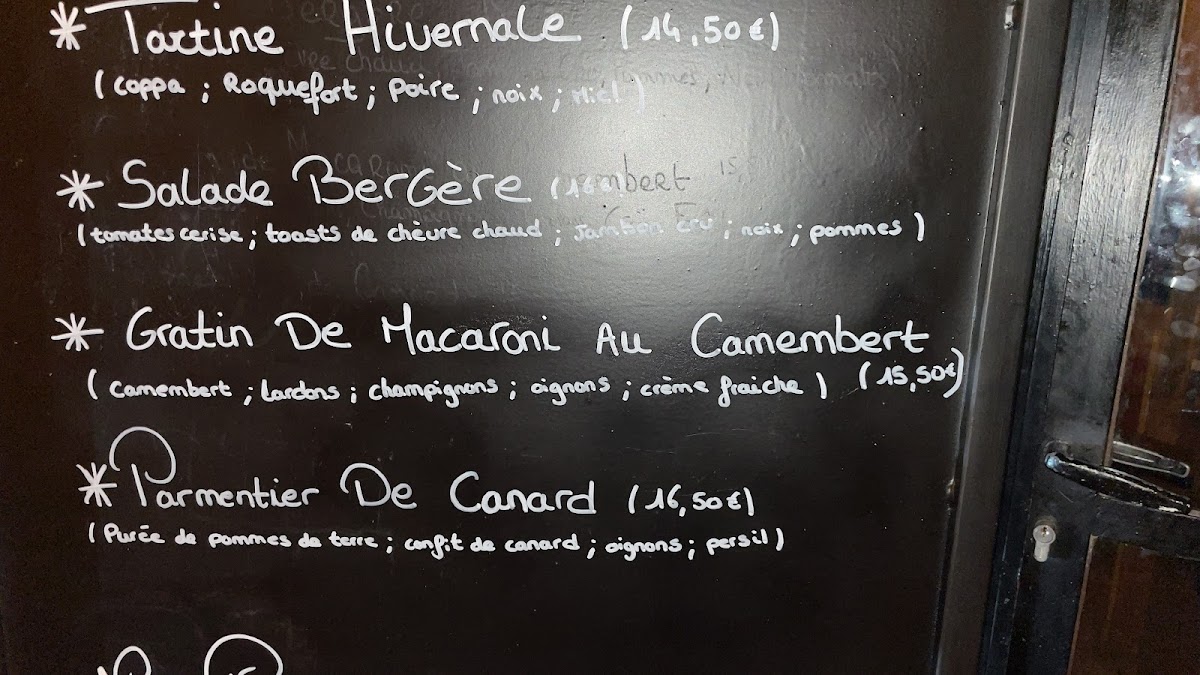 * Tartine Hivernale (14,50€)
(coppa ; Roquefort ; poire ; noix ; Miel)
* Salade Bergère
(tomates cerise ; toasts de chèvre chaud ; Jambon Cru ; noix ; pommes)
* Gratin De Macaroni Au Camembert
(camembert ; lardons ; champignons ; oignons ; crème fraiche) (15,50€)
* Parmentier De Canard (16,50€)
(Purée de pommes de terre ; confit de canard ; oignons ; persil)